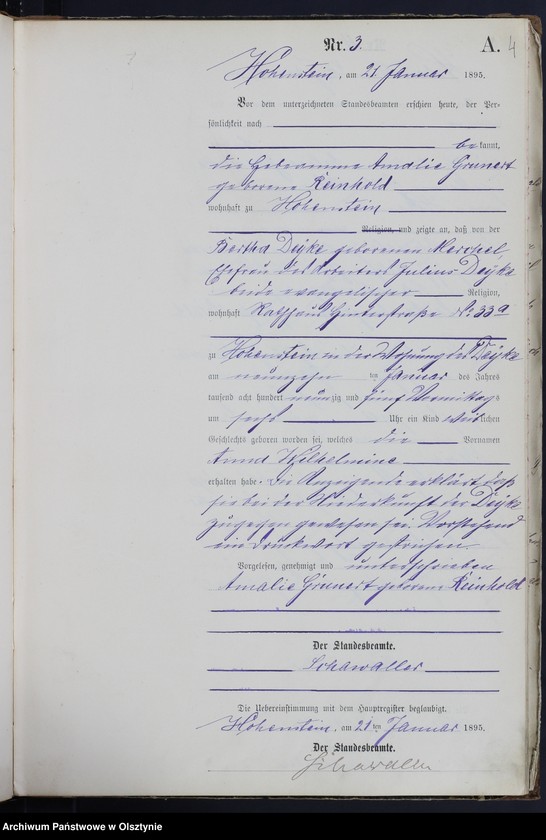 Nr. 3. A. 4
Hohenstein, am 21 Januar 1895.
Vor dem unterzeichneten Standesbeamten erschien heute, der Per-
sönlichkeit nach
bekannt,
die Hebeamme Amalie Grunert
geborene Reinhold
wohnhaft zu Hohenstein
Religion, und zeigte an, daß von der
Bertha Deÿke geborenen Merchel,
Ehefrau des Arbeiters Julius Deÿke
beide evangelischer Religion,
wohnhaft Rathhaus Hinterstraße No 33a
zu Hohenstein in der Wohnung der Deÿke
am neunzehn ten Januar des Jahres
tausend acht hundert neunzig und fünf Vormittags
um sechs Uhr ein Kind weiblichen
Geschlechts geboren worden sei, welches die Vornamen
Anna Wilhelmine
erhalten habe. Die Anzeigende erklärt daß
sie bei der Niederkunft der Deÿke
zugegen gewesen sei. Vorstehend
ein Druckwort gestrichen.
Vorgelesen, genehmigt und unterschrieben
Amalie Grunert geborene Reinhold
Der Standesbeamte.
Schawaller
Die Uebereinstimmung mit dem Hauptregister beglaubigt.
Hohenstein, am 21 ten Januar 1895.
Der Standesbeamte.
Schawaller
Archiwum Państwowe w Olsztynie